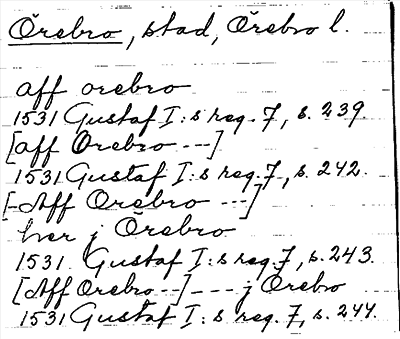 Örebro, stad, Örebro l.
aff orebro
1531 Gustaf I:s reg. 7, s. 239.
[aff Örebro ---]
1531 Gustaf I:s reg. 7, s. 242.
[-Aff Örebro ---]
her j Örebro
1531. Gustaf I:s reg. 7, s. 243
[Aff Örebro--] --- j Örebro
1531 Gustaf I:s reg. 7, s. 244.